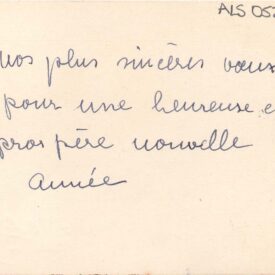 ALS 052
nos plus sincères vœux
pour une heureuse e
prospère nouvelle
année